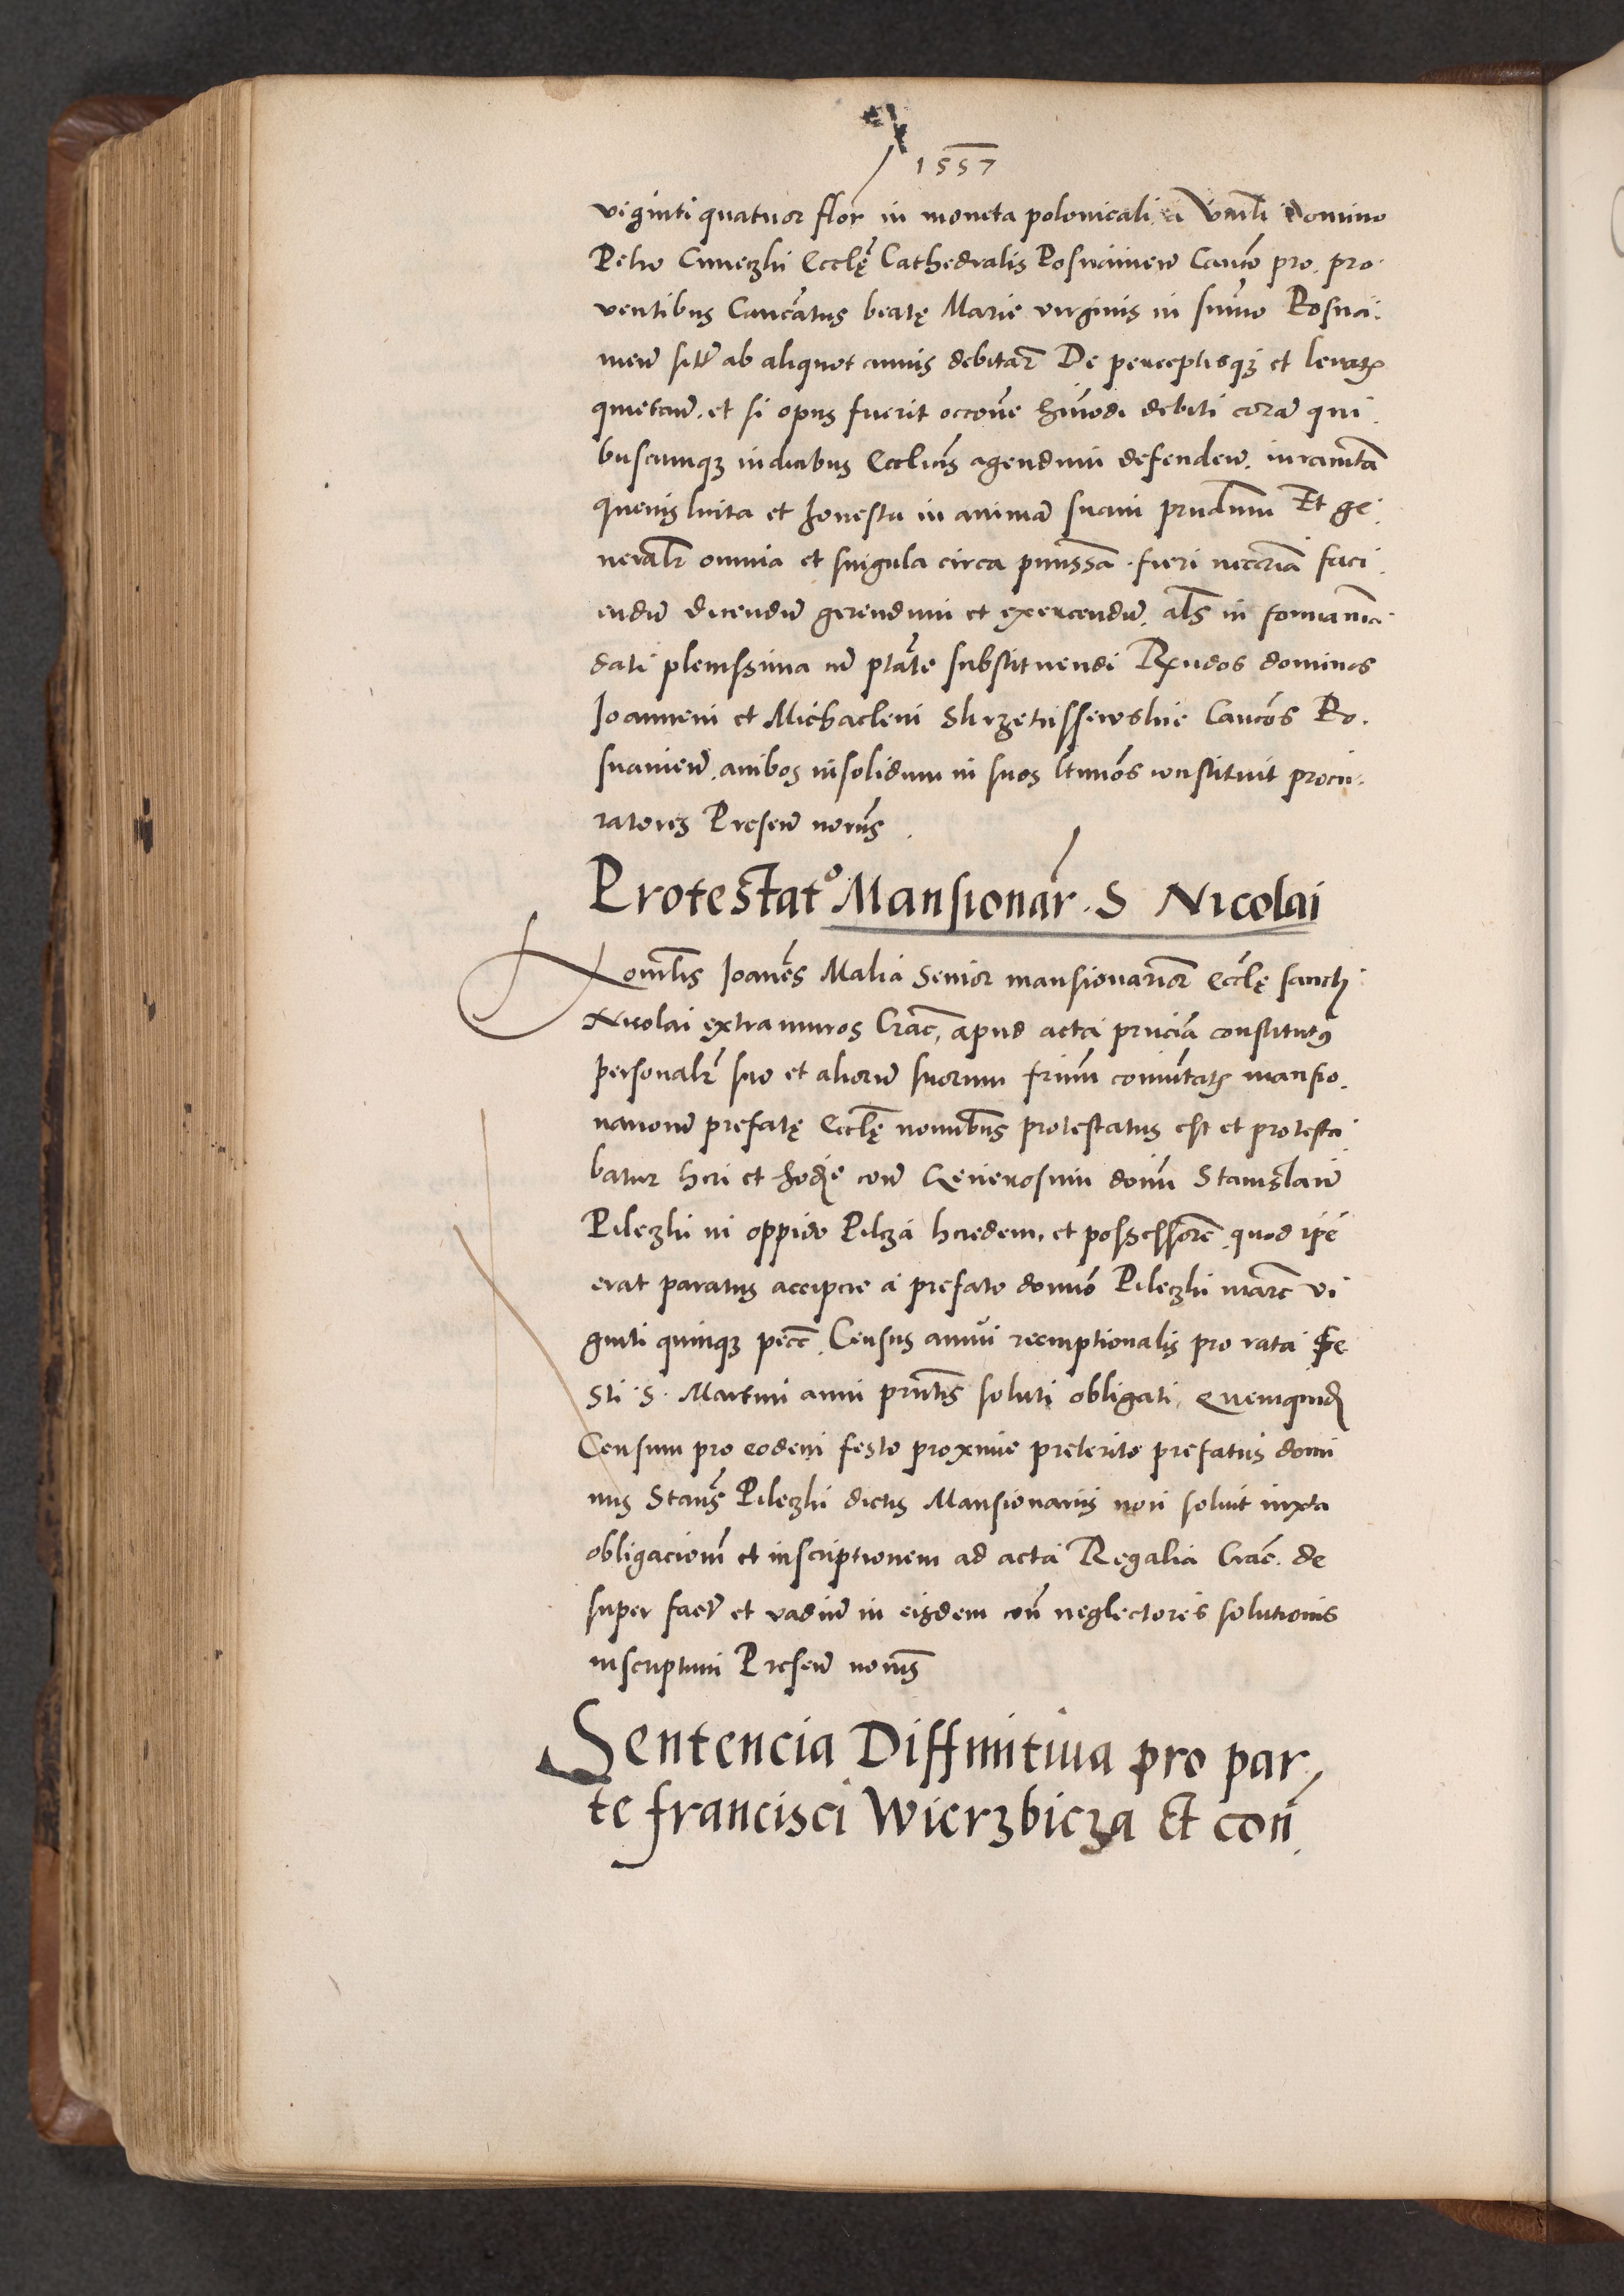 1557
viginti quatuor flor in moneta polonicali a Vnrli Domino
Petro Cuneczki Ecclę Cathedralis Posnanien Canco pro pro
ventibus Cancatus beatę Marie virginis in summo Posna
nien sitt ab aliquot annis debitar De perceptisq et levatis
quietan. et si opus fuerit occone hmodi debiti coram qui
buscunq iudicibus Ecclicis agendum defenden. iuramta
quevis licita et honesta in animam suam prndum Et ge
neralr omnia et singula circa premissa fieri necaria faci
endum dicendum gerendum et exercendum. als in forma man
dati plenissima cum ptate substituendi Rndos dominos
Joannem et Michaelem Skrzetussewskie Cancos Po
snanien. ambos insolidum in suos ltimos constituit procu
ratores Presen notriis
Protestato Mansionar. S Nicolai
Honorblis Joannes Malia Senior mansionarior Ecclę sancti
Nicolai extra muros Crac, apud acta pncia constitutus
personalr suo et aliorum suorum frum comunitatis mansio
nariorum prefatę Ecclę nominibus protestatus est et protesta
batur heri et hodie contra Generosum domin Stanislaum
Pileczki in oppido Pilcza heredem, et possessorem quod ipse
erat paratus accipere a prefato domino Pileczki marc vi
ginti quinq pecc Census annui reemptionalis pro rata fe
sti S. Martini anni prntis soluti obligati, Quemquid
Censum pro eodem festo proxime preterito prefatus domi
nus Stans Pileczki dictis Mansionariis non soluit iuxta
obligacionem et inscriptionem ad acta Regalia Crac. de
super fact et vadium in eisdem con neglectores solutionis
inscriptum Presen notriis
Sentencia Diffinitiua pro par
te francisci Wierzbicza Et con